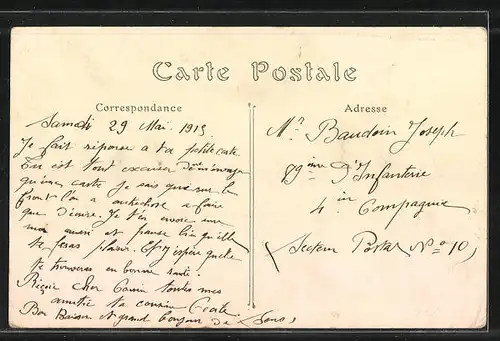 Carte Postale
Correspondance
Samedi 29 Mai 1915
Je fait réponse a ta petite carte
Tu est tout excuser de m'envoye
qu'une carte je sais que sur le
front l'on a autrechose a faire
que d'écrire. Je t'en envoie une
moi aussi et pense bien qu'elle
te feras plaisir. Et j'espère qu'elle
te trouveras en bonne santé.
Reçois cher Cousin toutes mes
amitié ta cousine
Bon Baiser et grand bonjour de
Adresse
Mr Baudoin Joseph
89ime D'Infanterie
4ie Compagnie
Secteur Postal No 10